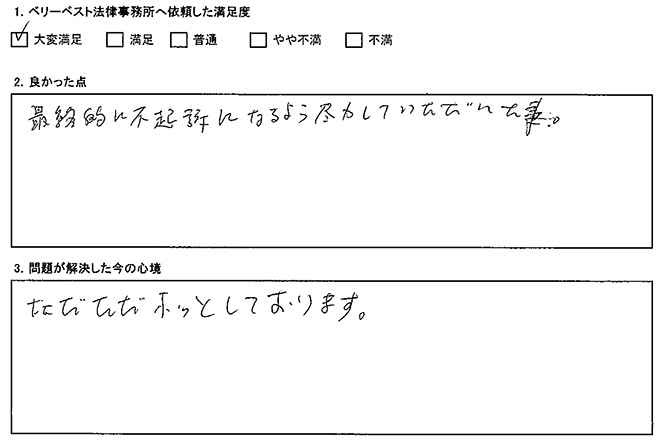 1. ベリーベスト法律事務所へ依頼した満足度
大変満足 満足 普通 やや不満 不満
2. 良かった点
最終的に不起訴になるよう尽力していただいた事。
3. 問題が解決した今の心境
ただただホッとしております。